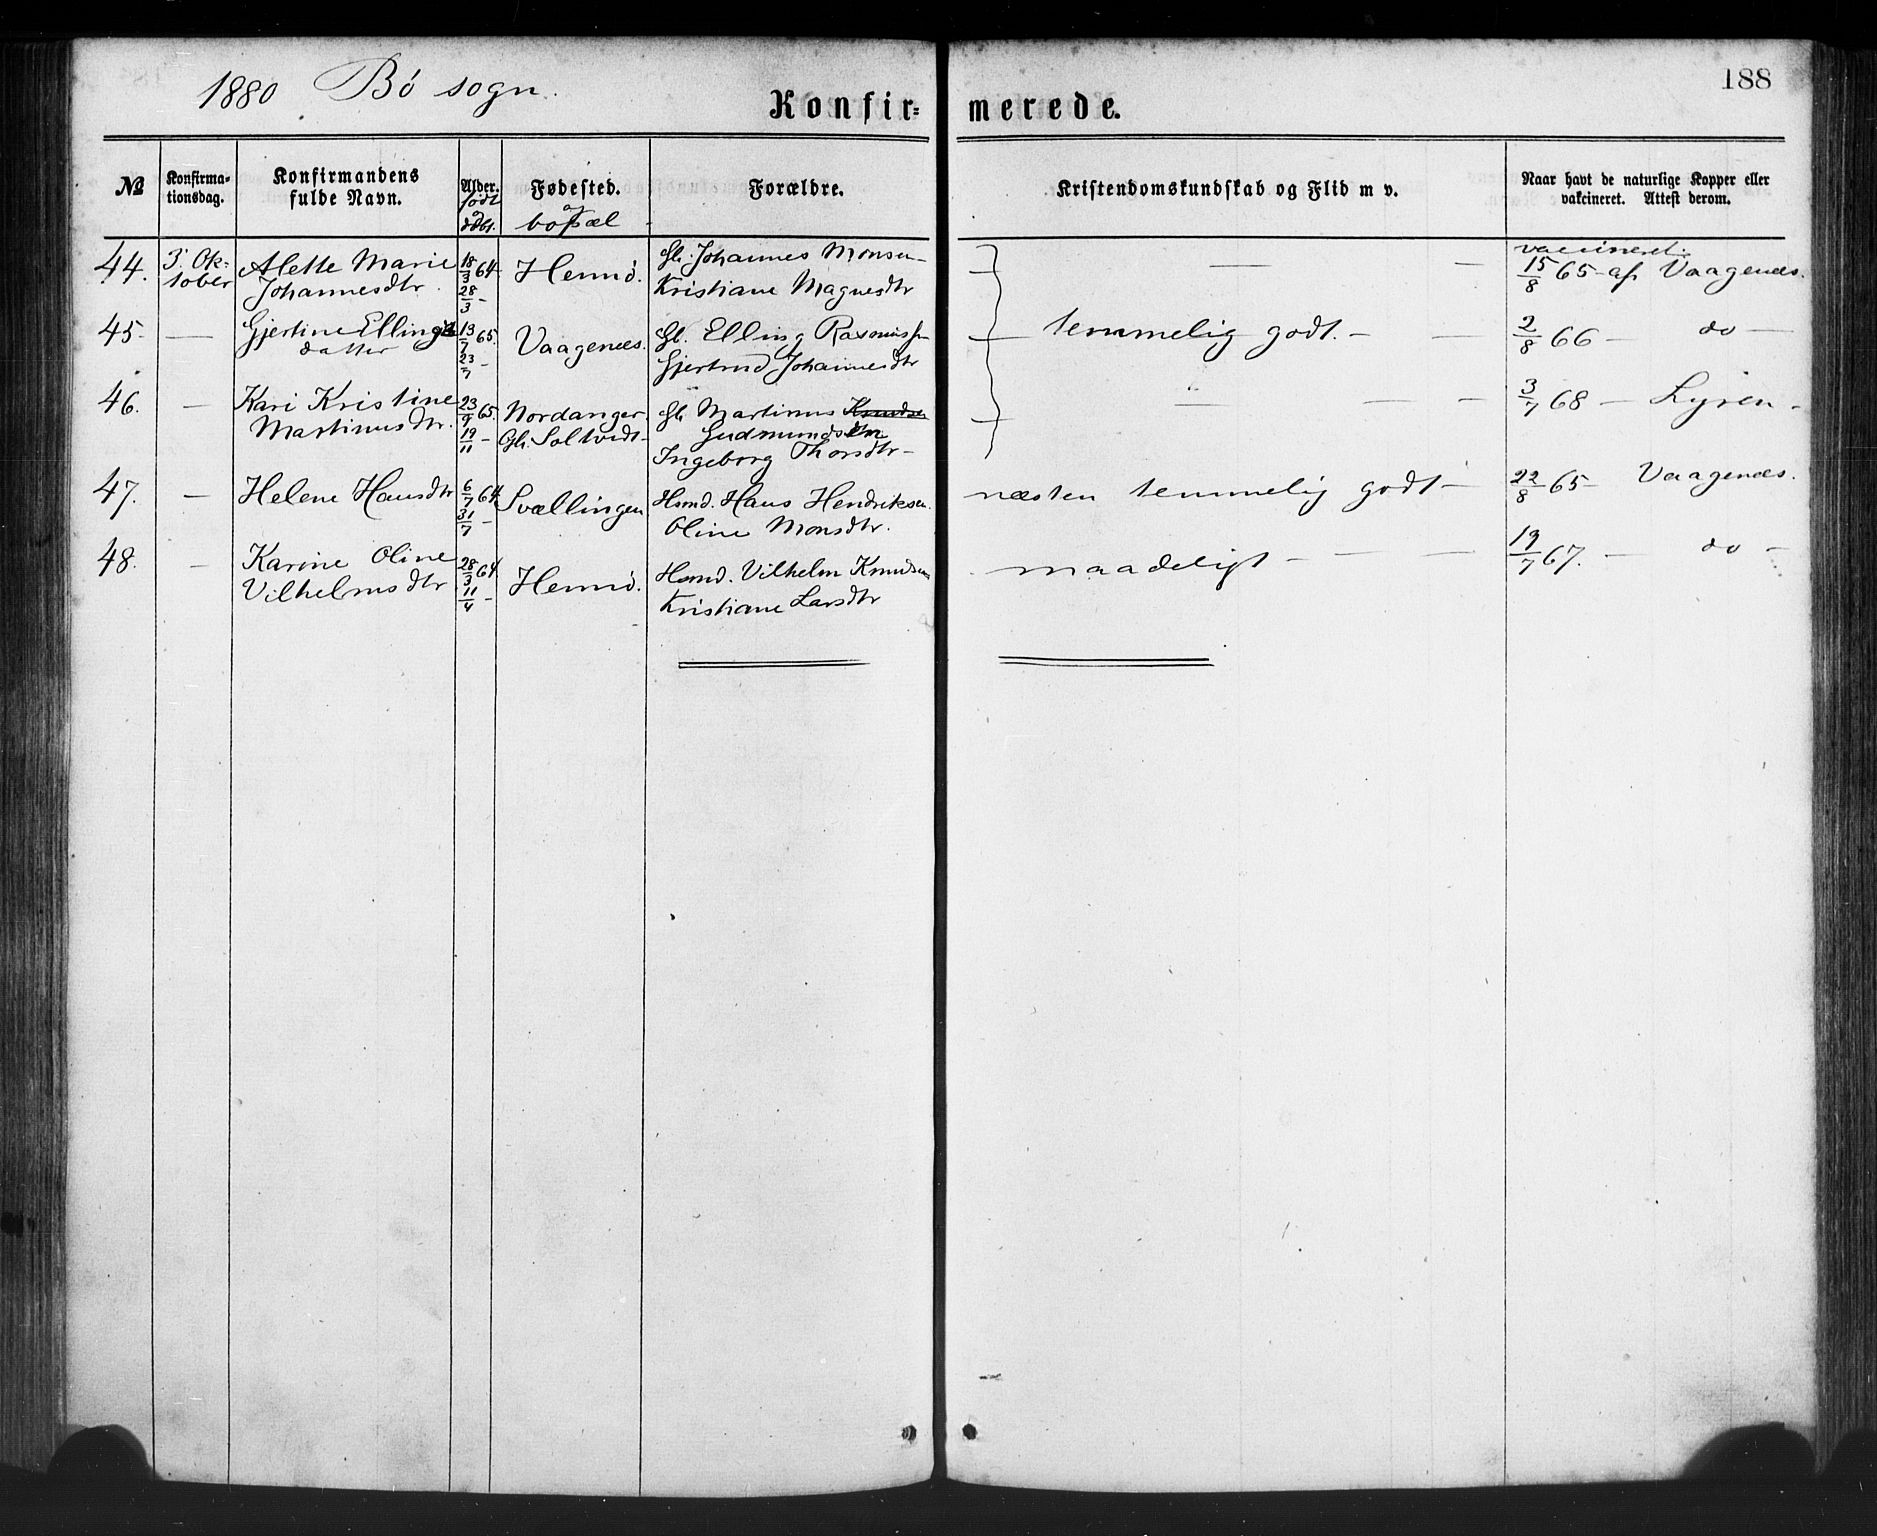 1880 Bö sogn.
188
Konfir= merede.
№
Konfirma=
tionsdag.
Konfirmandens
fulde Navn.
Alder.
født
døbt.
Fødested.
bopæl
Forældre.
Kristendomskundskab og Flid m v.
Naar havt de naturlige Kopper eller
vakcineret. Attest derom.
44. 3' Ok=
tober
Alette Marie
Johannesdtr.
18/3 64
28/3 -
Hennö.
Gb. Johannes Monsen
Kristiane Magnesdtr
—
vaccineret
15/8 65 - af Vaagenæs.
45. —
Gjertine Ellings
datter
13/7 65.
23/7 -
Vaagenæs.
Gb. Elling Rasmussen
Gjertrud Johannesdtr
temmelig godt. —
2/8 66 — do —
46. —
Kari Kristine
Martinusdtr.
23/9 65.
19/11 -
Nordanger.
Gb. Martinus Knudsen
Gudmundsen
Ingeborg Thorsdtr -
3/7 68 — Lyren -
47. —
Helene Hansdtr
6/7 64
31/7 -
Svællingen
Hsmd. Hans Hendriksen.
Oline Monsdtr.
næsten temmelig godt -
22/8 65 - Vaagenæs.
48. -
Karine Oline
Vilhelmsdtr
28/3 64
11/4 -
Hennö.
Hsmd. Vilhelm Knudsen
Kristiane Larsdtr
maadeligt -
19/7 67. — do -